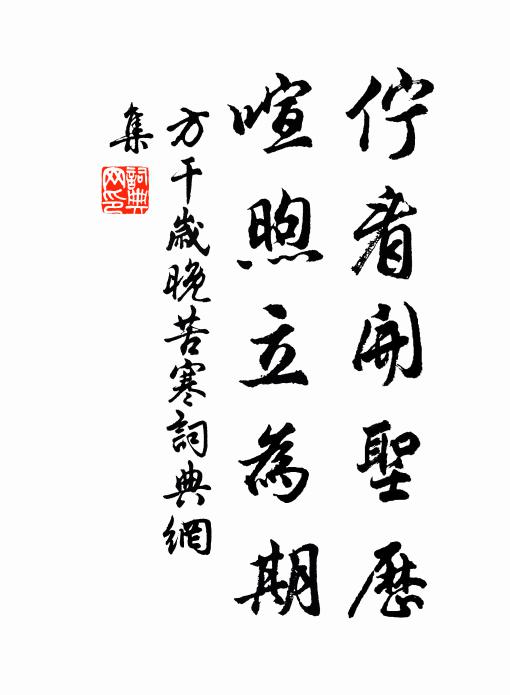 佇看開聖歷
喧煦立為期
方干歲晚苦寒詞典網
集
詞典
网印